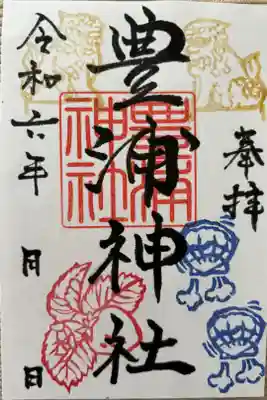 奉拝
豊浦神社
豊浦神社
令和六年 月 日